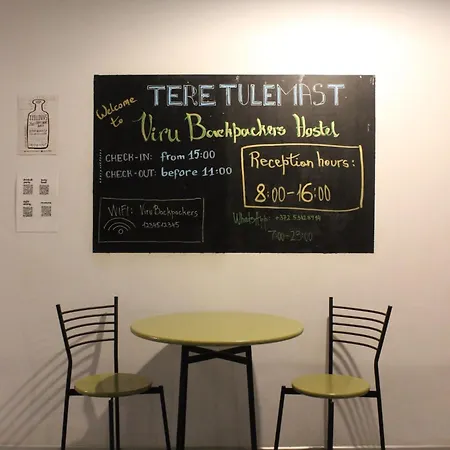 TERE TULEMAST
Welcome
to
Viru Backpackers Hostel
CHECK-IN: from 15:00
CHECK-OUT: before 11:00
Reception hours:
8:00-16:00
WIFI: Viru Backpackers
1234512345
WhatsApp:
7:00-23:00